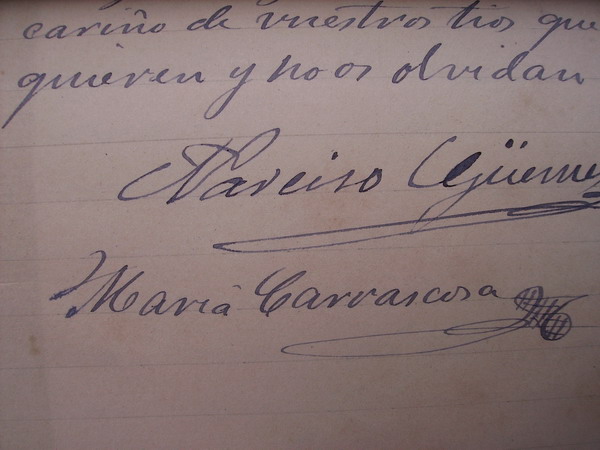 cariño de vuestros tios que
quieren y no os olvidan
Narciso Güemez
Maria Carrascosa